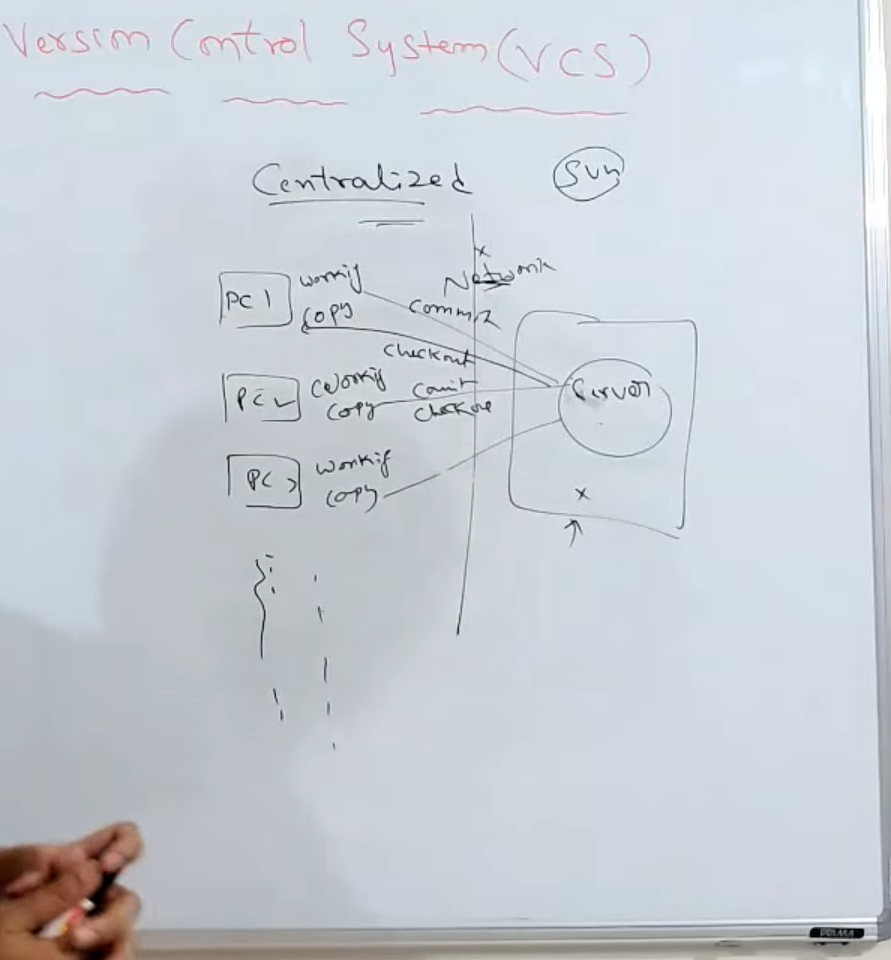 Version Control System (VCS)
Centralized
SVN
Network
PC1
working
copy
commit
checkout
PC2
working
copy
commit
checkout
Server
PC3
working
copy
x
x